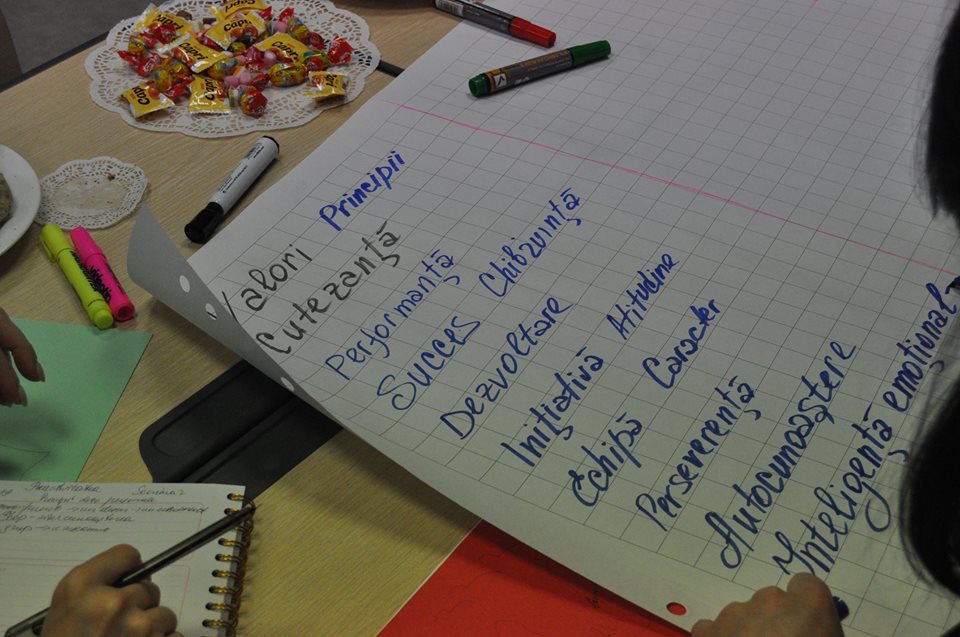 Capri
Valori Principii
Cutezanță
Performanță
Succes Chibzuință
Dezvoltare
Inițiativă Atitudine
Echipă Caracter
Perseverență
Autocunoaștere
Inteligență emoțional